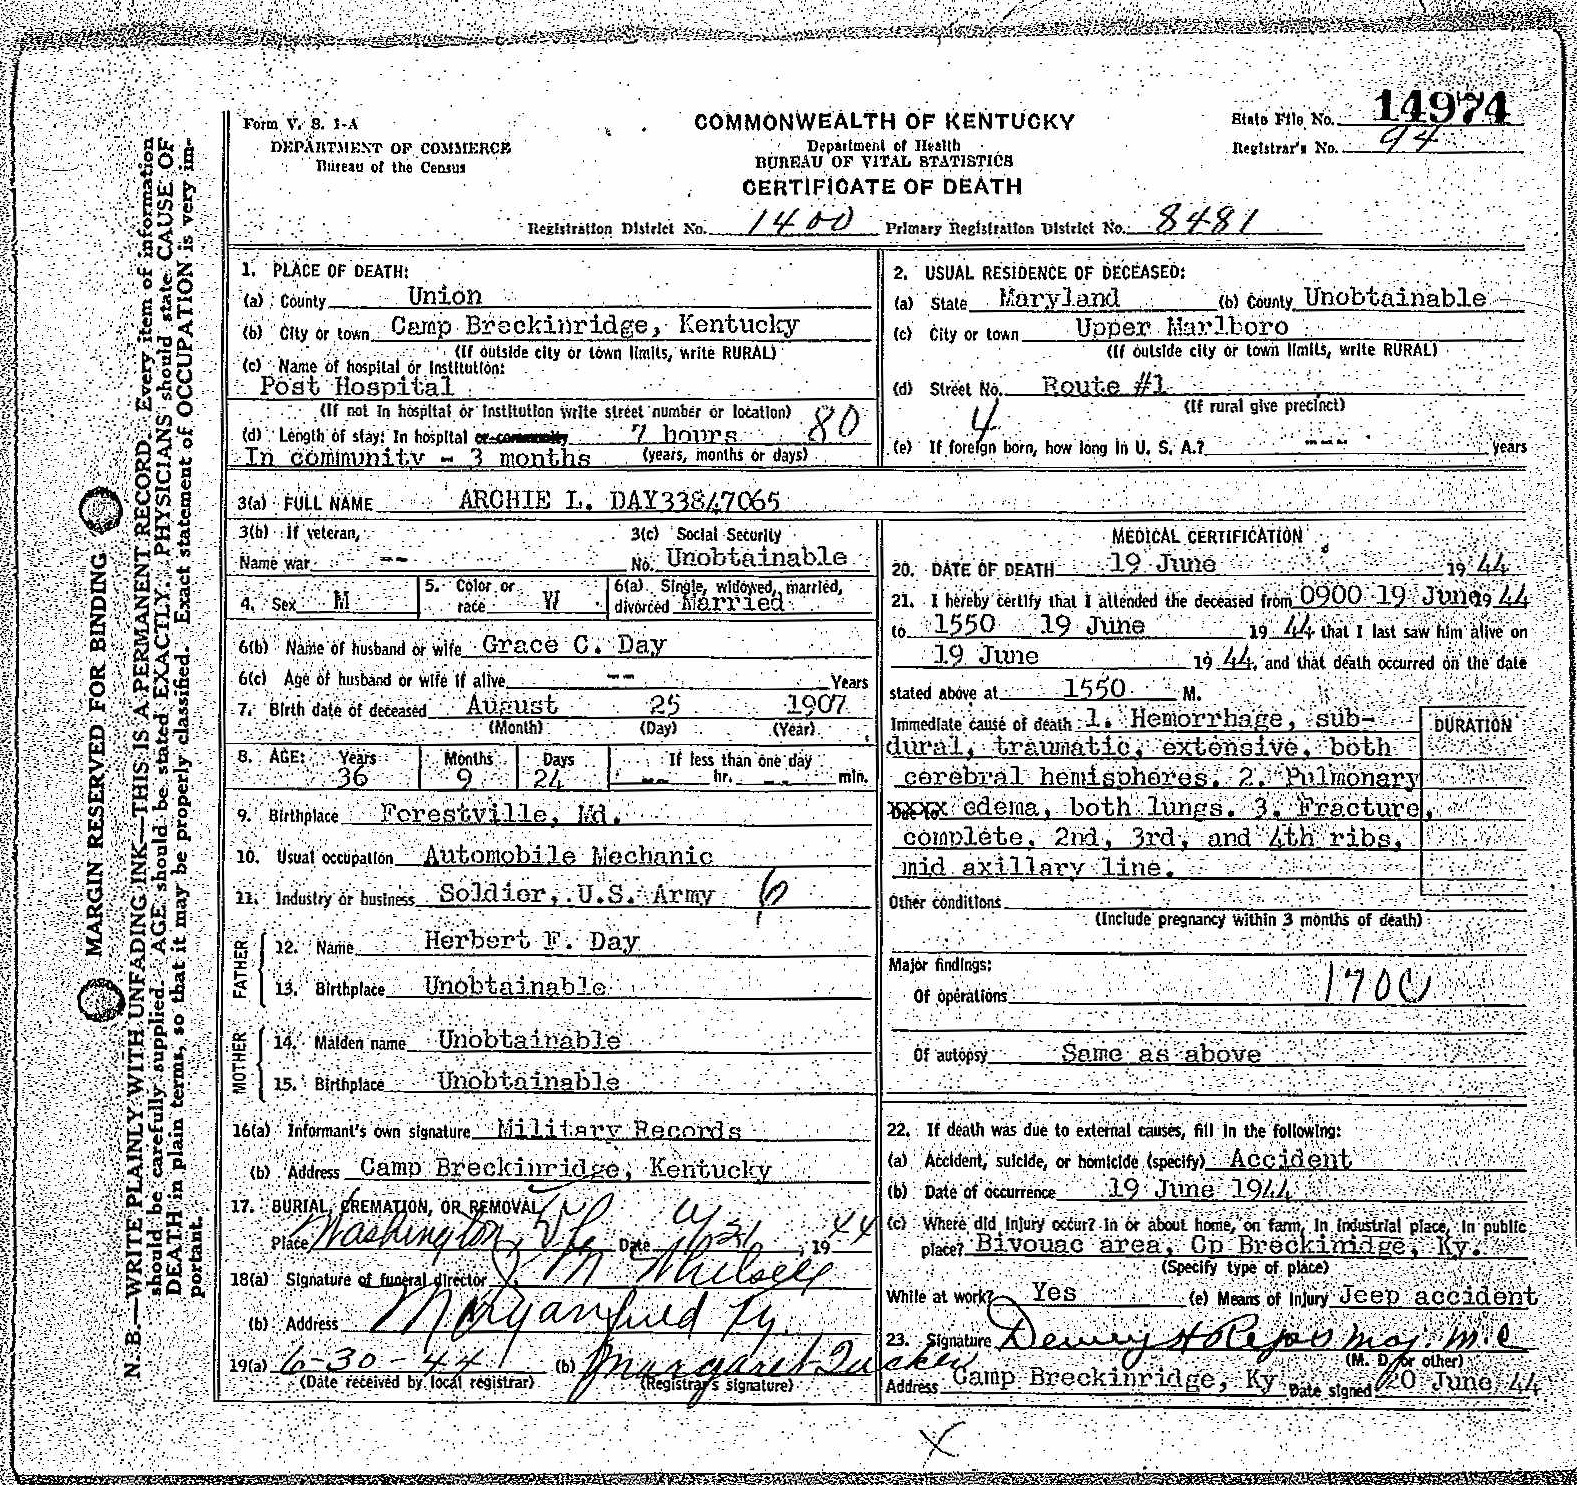 Form V. S. 1-A
DEPARTMENT OF COMMERCE
Bureau of the Census
COMMONWEALTH OF KENTUCKY
Department of Health
BUREAU OF VITAL STATISTICS
CERTIFICATE OF DEATH
State File No. 14974
Registrar's No. 94
Registration District No. 1400 Primary Registration District No. 8481
MARGIN RESERVED FOR BINDING
N. B.—WRITE PLAINLY WITH UNFADING INK—THIS IS A PERMANENT RECORD. Every item of information
should be carefully supplied. AGE should be stated EXACTLY. PHYSICIANS should state CAUSE OF
DEATH in plain terms, so that it may be properly classified. Exact statement of OCCUPATION is very im-
portant.
1. PLACE OF DEATH:
(a) County Union
(b) City or town Camp Breckinridge, Kentucky
(If outside city or town limits, write RURAL)
(c) Name of hospital or institution:
Post Hospital
(If not in hospital or institution write street number or location)
(d) Length of stay: In hospital or community 7 hours 80
In community - 3 months (years, months or days)
2. USUAL RESIDENCE OF DECEASED:
(a) State Maryland (b) County Unobtainable
(c) City or town Upper Marlboro
(If outside city or town limits, write RURAL)
(d) Street No. Route #1
(If rural give precinct)
4
(e) If foreign born, how long in U. S. A.? ---- years
3(a) FULL NAME ARCHIE L. DAY 33847065
3(b) If veteran,
Name war --
3(c) Social Security
No. Unobtainable
4. Sex M
5. Color or
race W
6(a) Single, widowed, married,
divorced Married
6(b) Name of husband or wife Grace C. Day
6(c) Age of husband or wife if alive -- Years
7. Birth date of deceased August 25 1907
(Month) (Day) (Year)
8. AGE: Years Months Days If less than one day
36 9 24 -- hr. -- min.
9. Birthplace Forestville, Md.
10. Usual occupation Automobile Mechanic
11. Industry or business Soldier, U.S. Army
FATHER
12. Name Herbert F. Day
13. Birthplace Unobtainable
MOTHER
14. Maiden name Unobtainable
15. Birthplace Unobtainable
16(a) Informant's own signature Military Records
(b) Address Camp Breckinridge, Kentucky
17. BURIAL, CREMATION, OR REMOVAL
Place Washington, Date 6/21, 1944
18(a) Signature of funeral director
(b) Address Morganfield Ky.
19(a) 6-30-44 (b) Margaret Tucker
(Date received by local registrar) (Registrar's signature)
MEDICAL CERTIFICATION
20. DATE OF DEATH 19 June 1944
21. I hereby certify that I attended the deceased from 0900 19 June 1944
to 1550 19 June 1944 that I last saw him alive on
19 June 1944, and that death occurred on the date
stated above at 1550 M.
Immediate cause of death 1. Hemorrhage, sub-
dural, traumatic, extensive, both
cerebral hemispheres. 2. Pulmonary
Due to xxxx edema, both lungs. 3. Fracture,
complete, 2nd, 3rd, and 4th ribs,
mid axillary line.
DURATION
Other conditions
(Include pregnancy within 3 months of death)
Major findings:
Of operations 170C
Of autopsy Same as above
22. If death was due to external causes, fill in the following:
(a) Accident, suicide, or homicide (specify) Accident
(b) Date of occurrence 19 June 1944
(c) Where did injury occur? In or about home, on farm, in industrial place, in public
place? Bivouac area, Cp Breckinridge, Ky.
(Specify type of place)
While at work? Yes (e) Means of Injury Jeep accident
23. Signature Dewey H Maj. M.C
(M. D. or other)
Address Camp Breckinridge, Ky Date signed 20 June 44
X